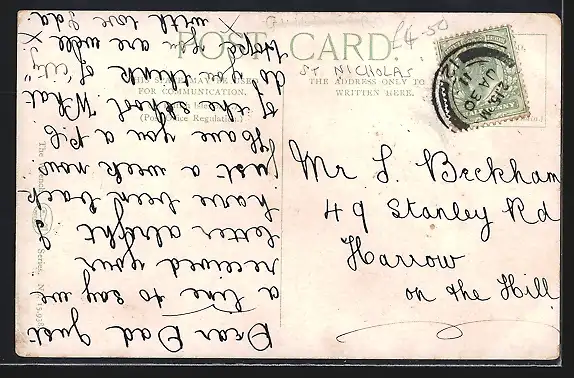 POST CARD.
£4-50
ST NICHOLAS
FOR COMMUNICATION.
THE ADDRESS ONLY TO
WRITTEN HERE.
Mr S. Beckham
49 Stanley Rd
Harrow
on the Hill
Dear Dad Just
a line to say we
received your
letter alright
have been back
just a week now
Have you a p.c.
of the school What
do you think of
Hope you are well
with love Ida